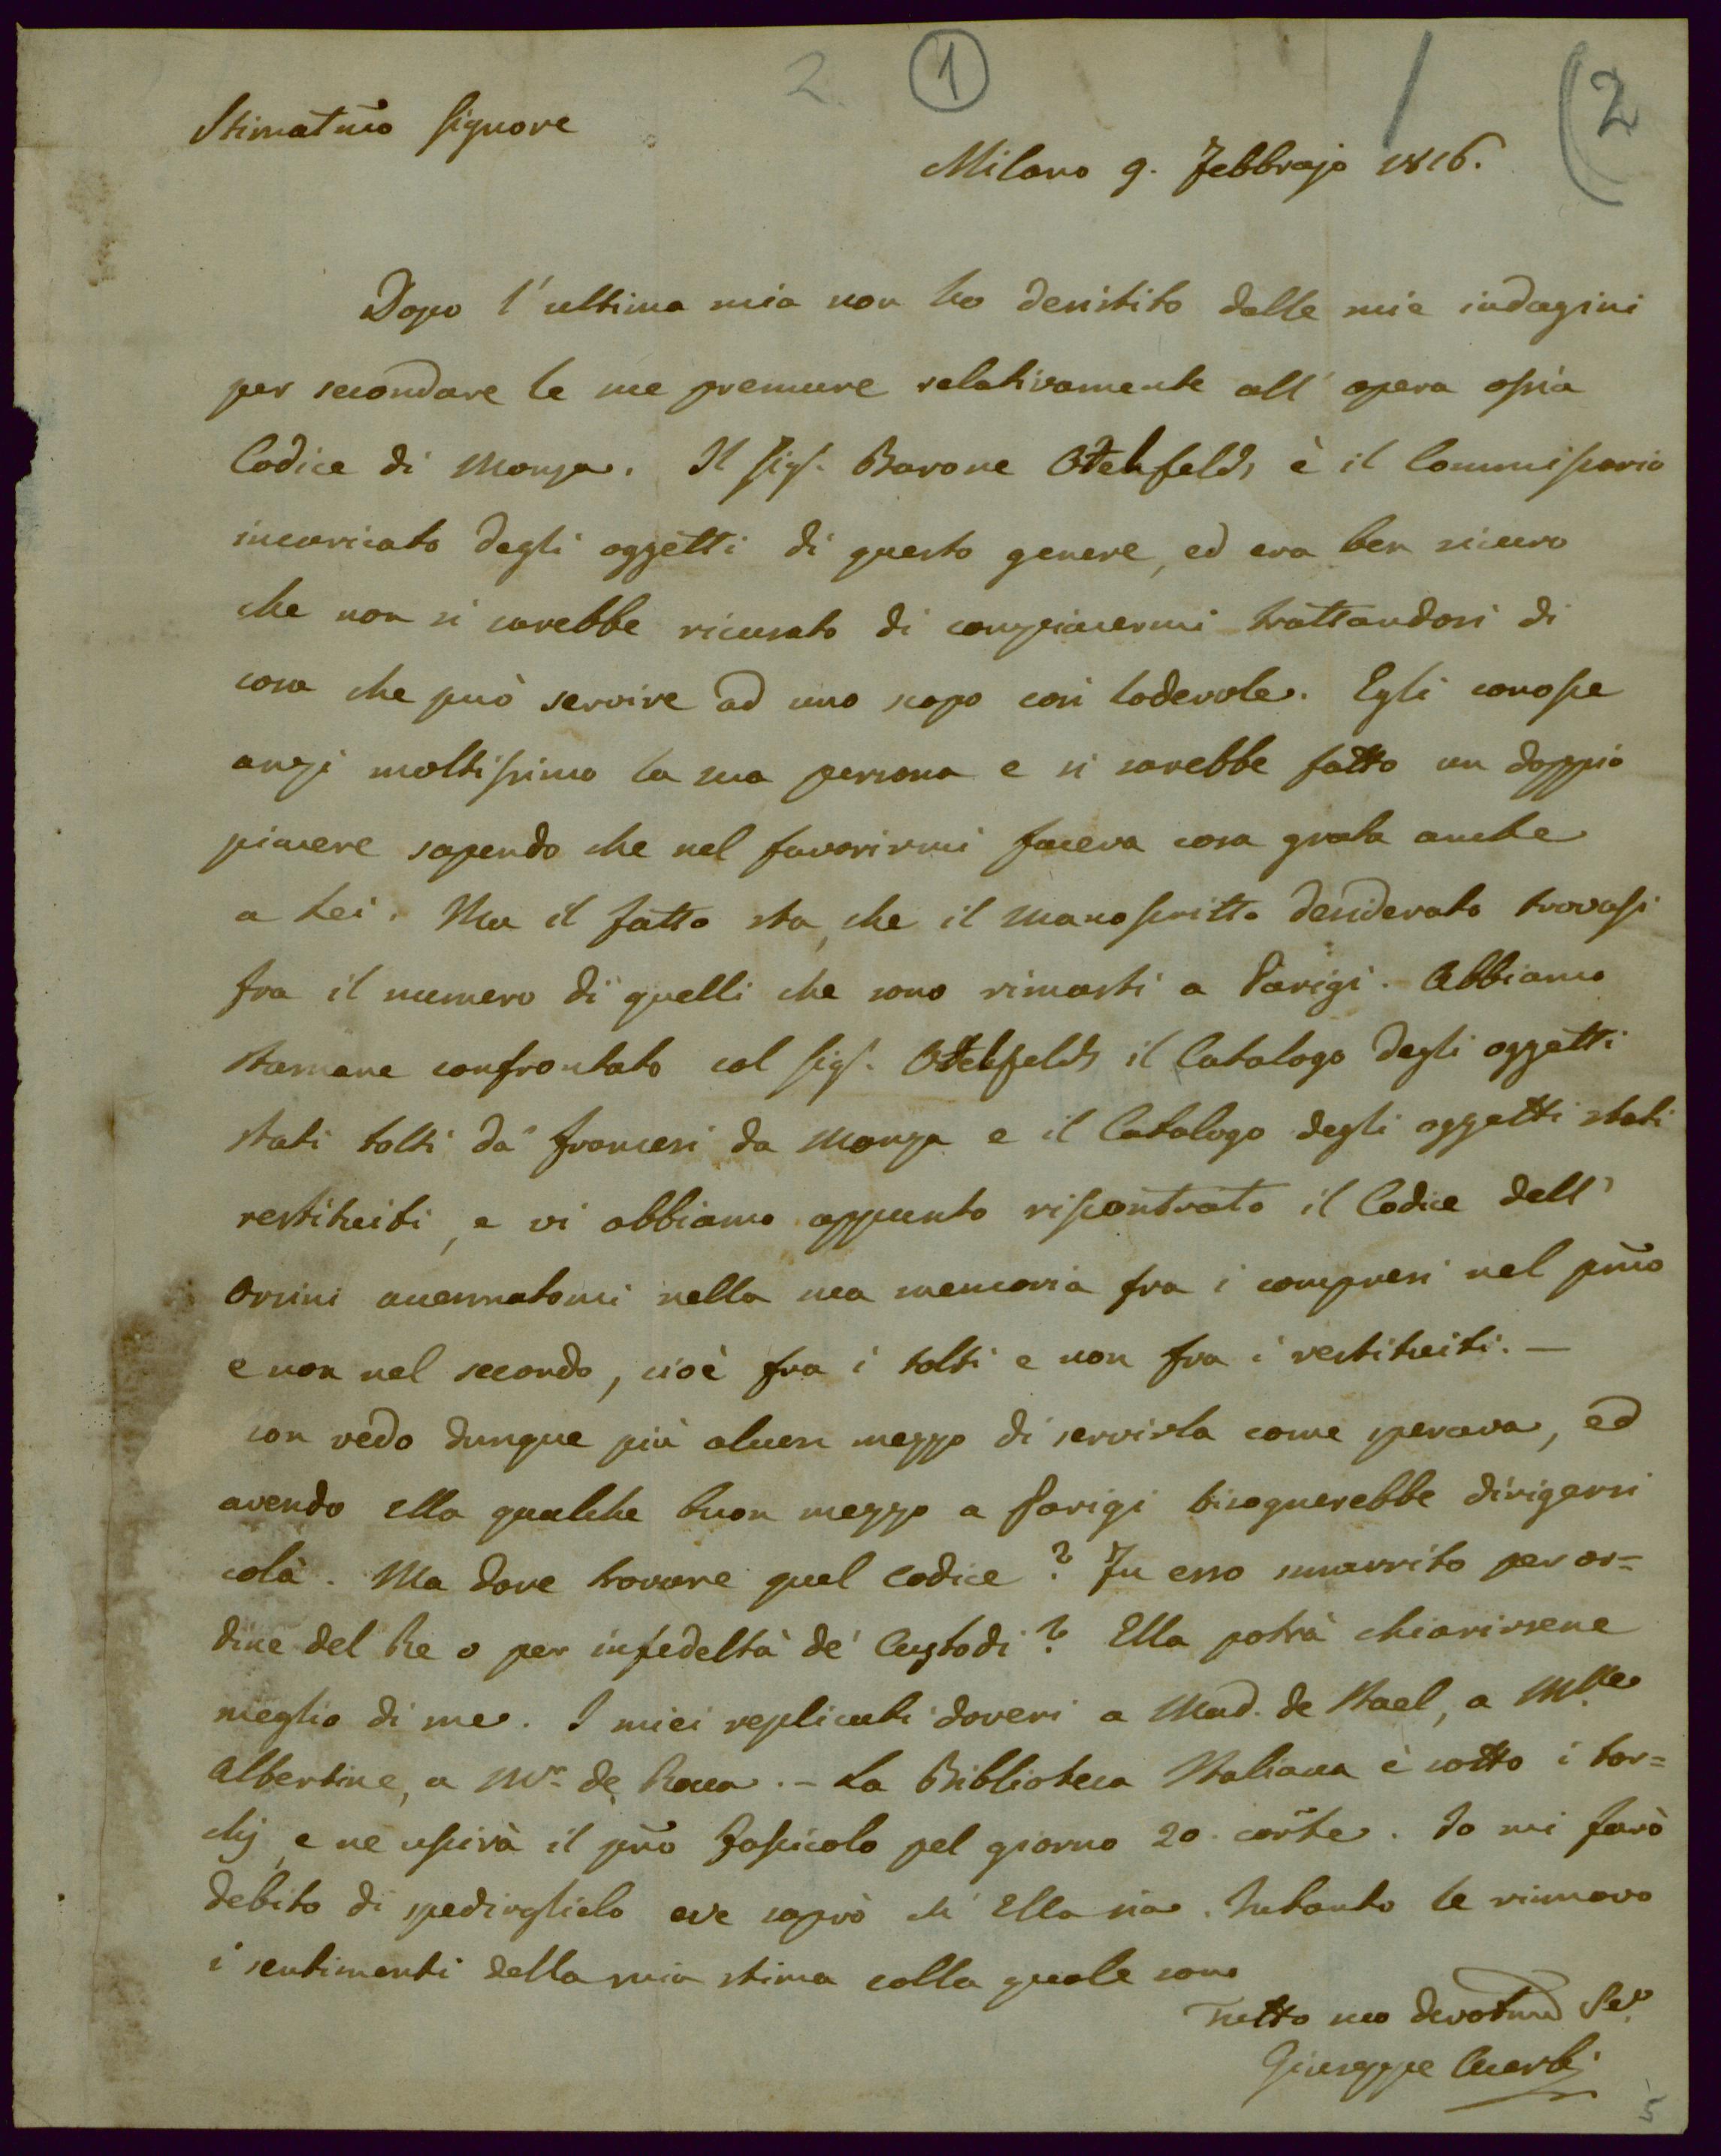 2. 1 / (2
Stimatm̃o Signore
Milano 9. Febbrajo 1816.
Dopo l'ultima mia non ho desistito dalle mie indagini
per secondare le sue premure relativamente all' opera ossia
Codice di Monza. Il Sigr. Barone Ottenfelds è il Commissario
incaricato degli oggetti di questo genere, ed era ben sicuro
che non si sarebbe ricusato di compiacermi trattandosi di
cosa che può servire ad uno scopo così lodevole. Egli conosce
anzi moltissimo la sua persona e si sarebbe fatto un doppio
piacere sapendo che nel favorirmi faceva cosa grata anche
a Lei. Ma il fatto sta, che il manoscritto desiderato trovasi
fra il numero di quelli che sono rimasti a Parigi. Abbiamo
stamane confrontato col Sigr. Ottenfelds il Catalogo degli oggetti
stati tolti da' francesi da Monza e il Catalogo degli oggetti stati
restituiti, e vi abbiamo appunto riscontrato il Codice dell'
Orsini accennatomi nella sua memoria fra i compresi nel pm̃o
e non nel secondo, cioè fra i tolti e non fra i restituiti. —
non vedo dunque più alcun mezzo di servirla come sperava, ed
avendo ella qualche buon mezzo a Parigi bisognerebbe dirigersi
colà. Ma dove trovare quel Codice? Fu esso smarrito per or=
dine del Re o per infedeltà de' Custodi? Ella potrà chiarirsene
meglio di me. I miei replicati doveri a Mad. de Stael, a Mlle
Albertine, a Mr. de Rocca. — La Biblioteca Italiana è sotto i tor=
chj, e ne uscirà il pm̃o Fascicolo pel giorno 20. corr̃te. Io mi farò
debito di spedirglielo ove saprò ch' Ella sia. Intanto le rinnovo
i sentimenti della mia stima colla quale sono
Tutto suo devotm̃o Sere.
Giuseppe Acerbi
5